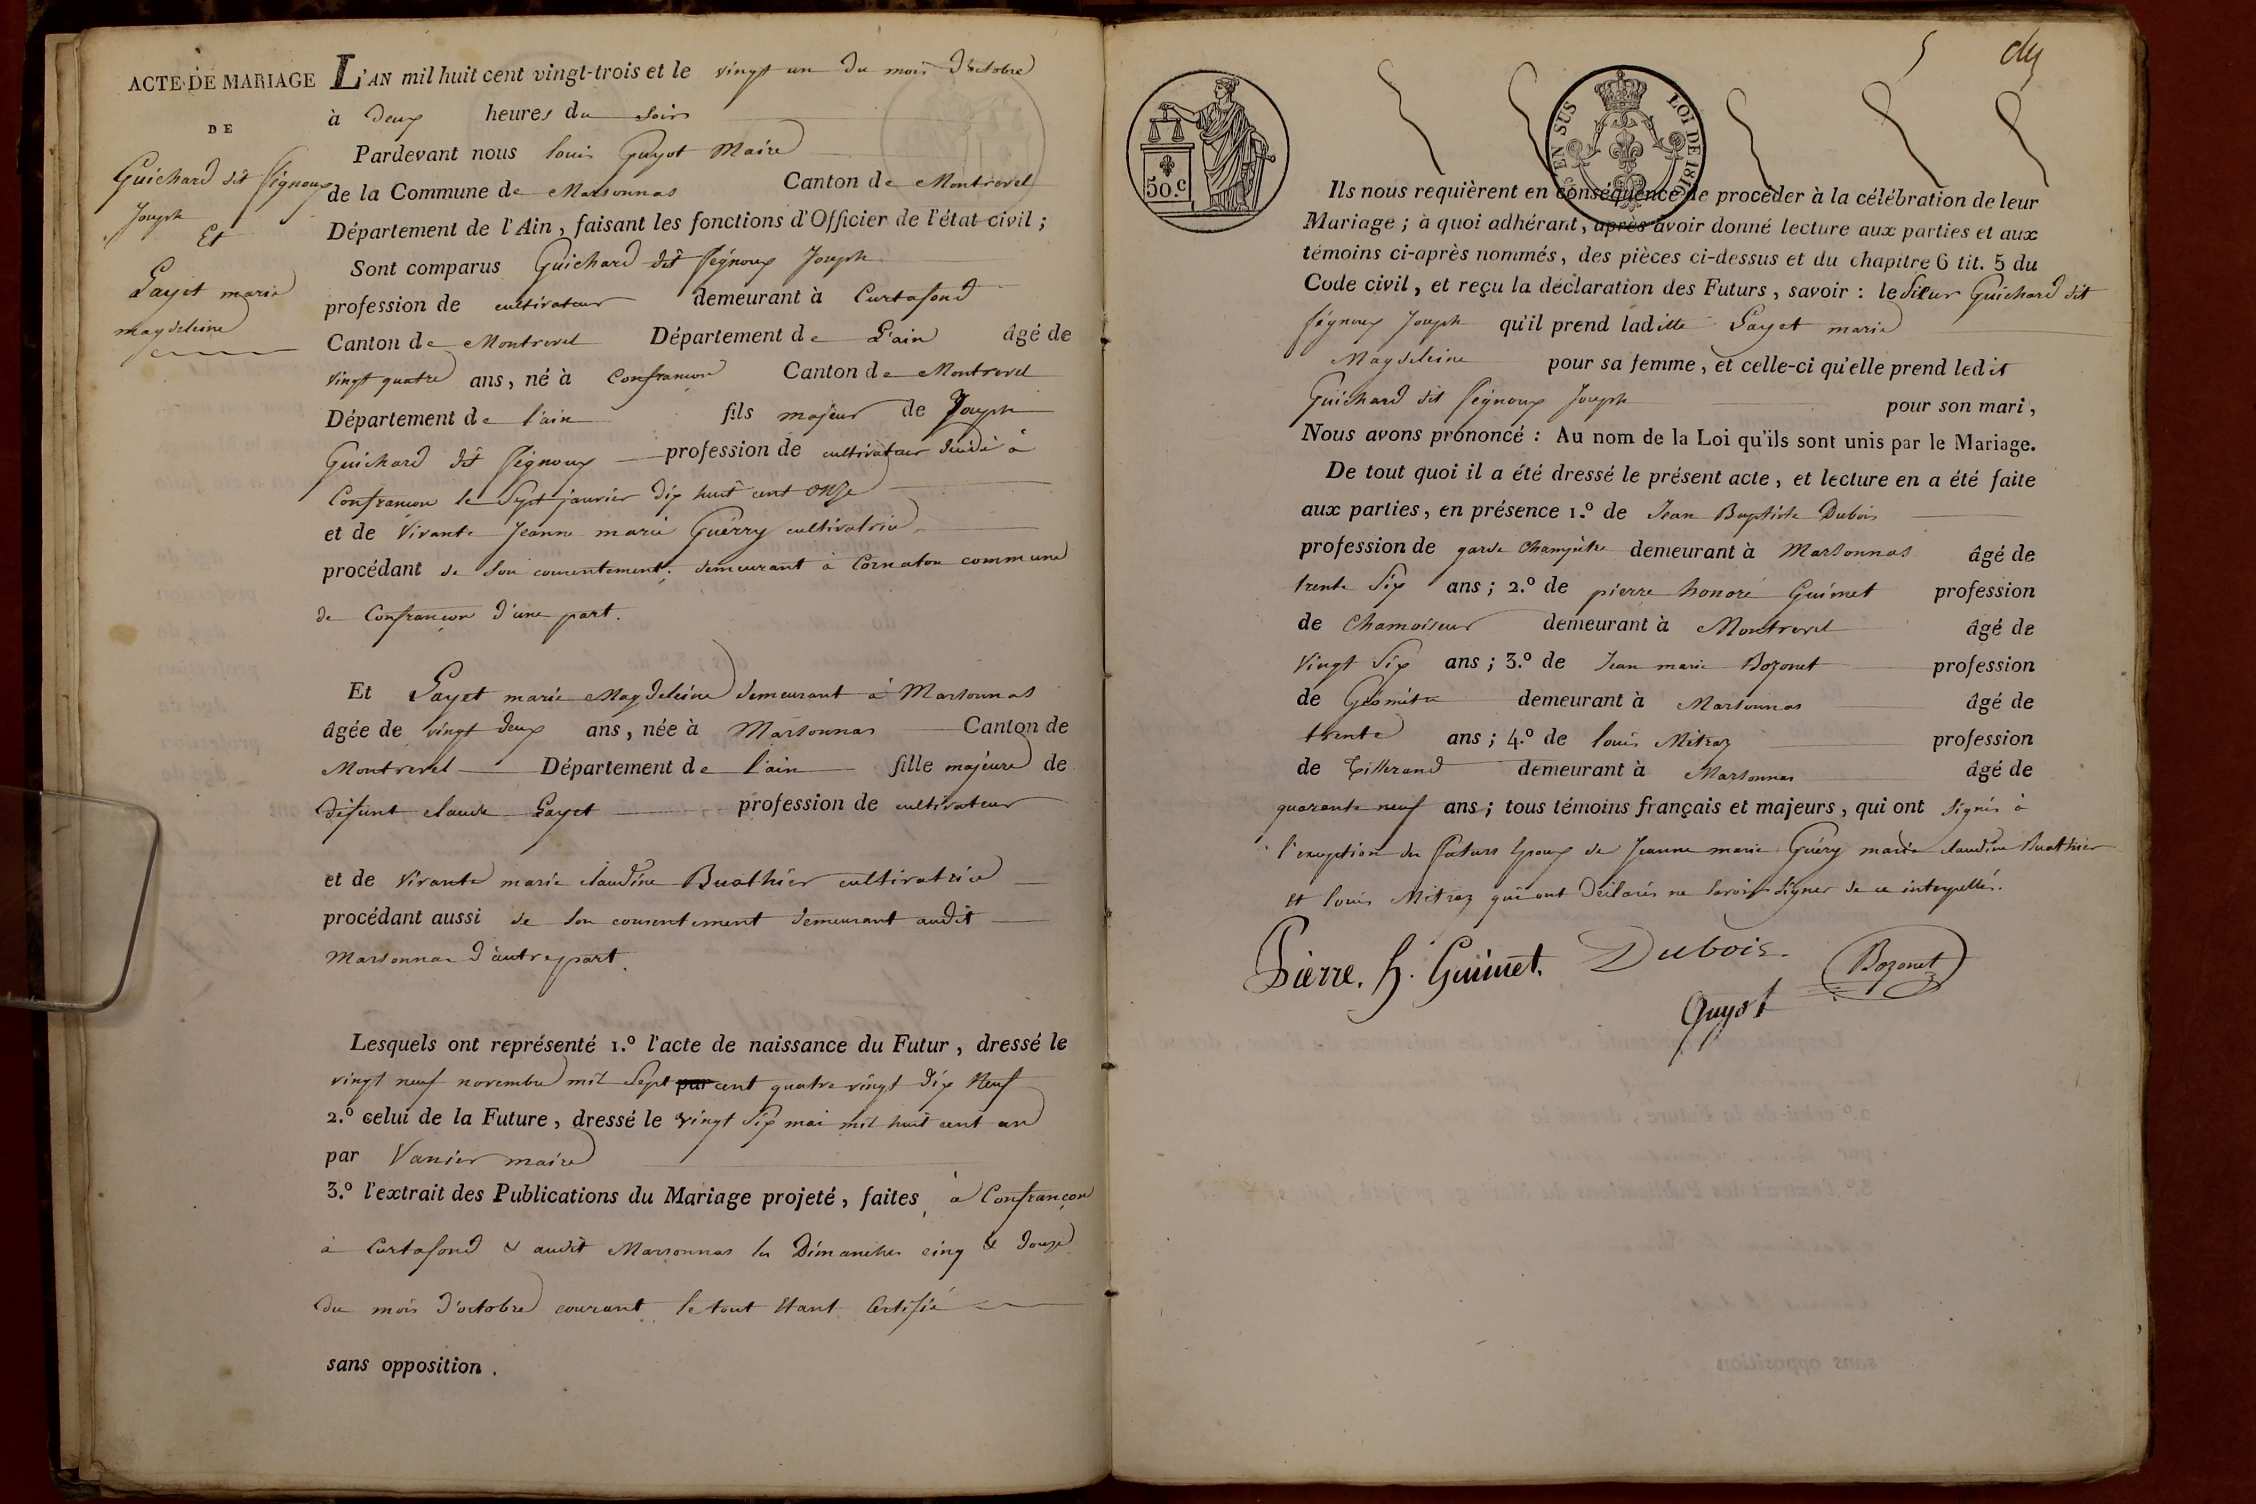 ACTE DE MARIAGE
DE
Guichard dit Pégnoux
Joseph
Et
Gayet marie
magdeleine
L'AN mil huit cent vingt-trois et le vingt un du mois d'octobre
à deux heures du soir
Pardevant nous louis Guyot Maire
de la Commune de Marsonnas Canton de Montrevel
Département de l'Ain, faisant les fonctions d'Officier de l'état civil ;
Sont comparus Guichard dit Pégnoux Joseph
profession de cultivateur demeurant à Curtafond
Canton de Montrevel Département de L'ain âgé de
vingt quatre ans, né à Confrançon Canton de Montrevel
Département de l'ain fils majeur de Joseph
Guichard dit Pégnoux profession de cultivateur décédé à
Confrançon le Sept janvier dix huit cent onze
et de vivante Jeanne marie Guérry cultivatrice
procédant de son consentement, demeurant à Cornaton commune
de Confrançon d'une part.
Et Gayet marie Magdeleine demeurant à Marsonnas
âgée de vingt deux ans, née à Marsonnas Canton de
Montrevel Département de l'ain fille majeure de
défunt claude Gayet profession de cultivateur
et de vivante marie claudine Buathier cultivatrice
procédant aussi de son consentement demeurant audit
Marsonnas d'autre part.
Lesquels ont représenté 1.º l'acte de naissance du Futur, dressé le
vingt neuf novembre mil Sept par cent quatre vingt dix Neuf
2.º celui de la Future, dressé le vingt Six mai mil huit cent un
par Vanier maire
3.º l'extrait des Publications du Mariage projeté, faites à Confrançon
à Curtafond & audit Marsonnas les Dimanches cinq & douze
du mois d'octobre courant le tout Etant Certifié
sans opposition.
50.c
EN SUS
LOI DE 1816
Ils nous requièrent en conséquence de procéder à la célébration de leur
Mariage ; à quoi adhérant, après avoir donné lecture aux parties et aux
témoins ci-après nommés, des pièces ci-dessus et du chapitre 6 tit. 5 du
Code civil, et reçu la déclaration des Futurs, savoir : le dit sieur Guichard dit
Pégnoux Joseph qu'il prend ladite Gayet marie
Magdeleine pour sa femme, et celle-ci qu'elle prend ledit
Guichard dit Pégnoux Joseph pour son mari,
Nous avons prononcé : Au nom de la Loi qu'ils sont unis par le Mariage.
De tout quoi il a été dressé le présent acte, et lecture en a été faite
aux parties, en présence 1.º de Jean Baptiste Dubois
profession de garde Champêtre demeurant à Marsonnas âgé de
trente Six ans ; 2.º de pierre honoré Guimet profession
de Chamoiseur demeurant à Montrevel âgé de
vingt Six ans ; 3.º de Jean marie Bozonet profession
de Géomètre demeurant à Marsonnas âgé de
trente ans ; 4.º de louis Mitraz profession
de Tisserand demeurant à Marsonnas âgé de
quarante neuf ans ; tous témoins français et majeurs, qui ont Signés à
l'exception des futurs Epoux de Jeanne marie Guéry marie claudine Buathier
et louis Mitraz qui ont déclarés ne Savoir Signer de ce interpellés.
Pierre. h. Guimet. Dubois.
Bozonet
Guyot